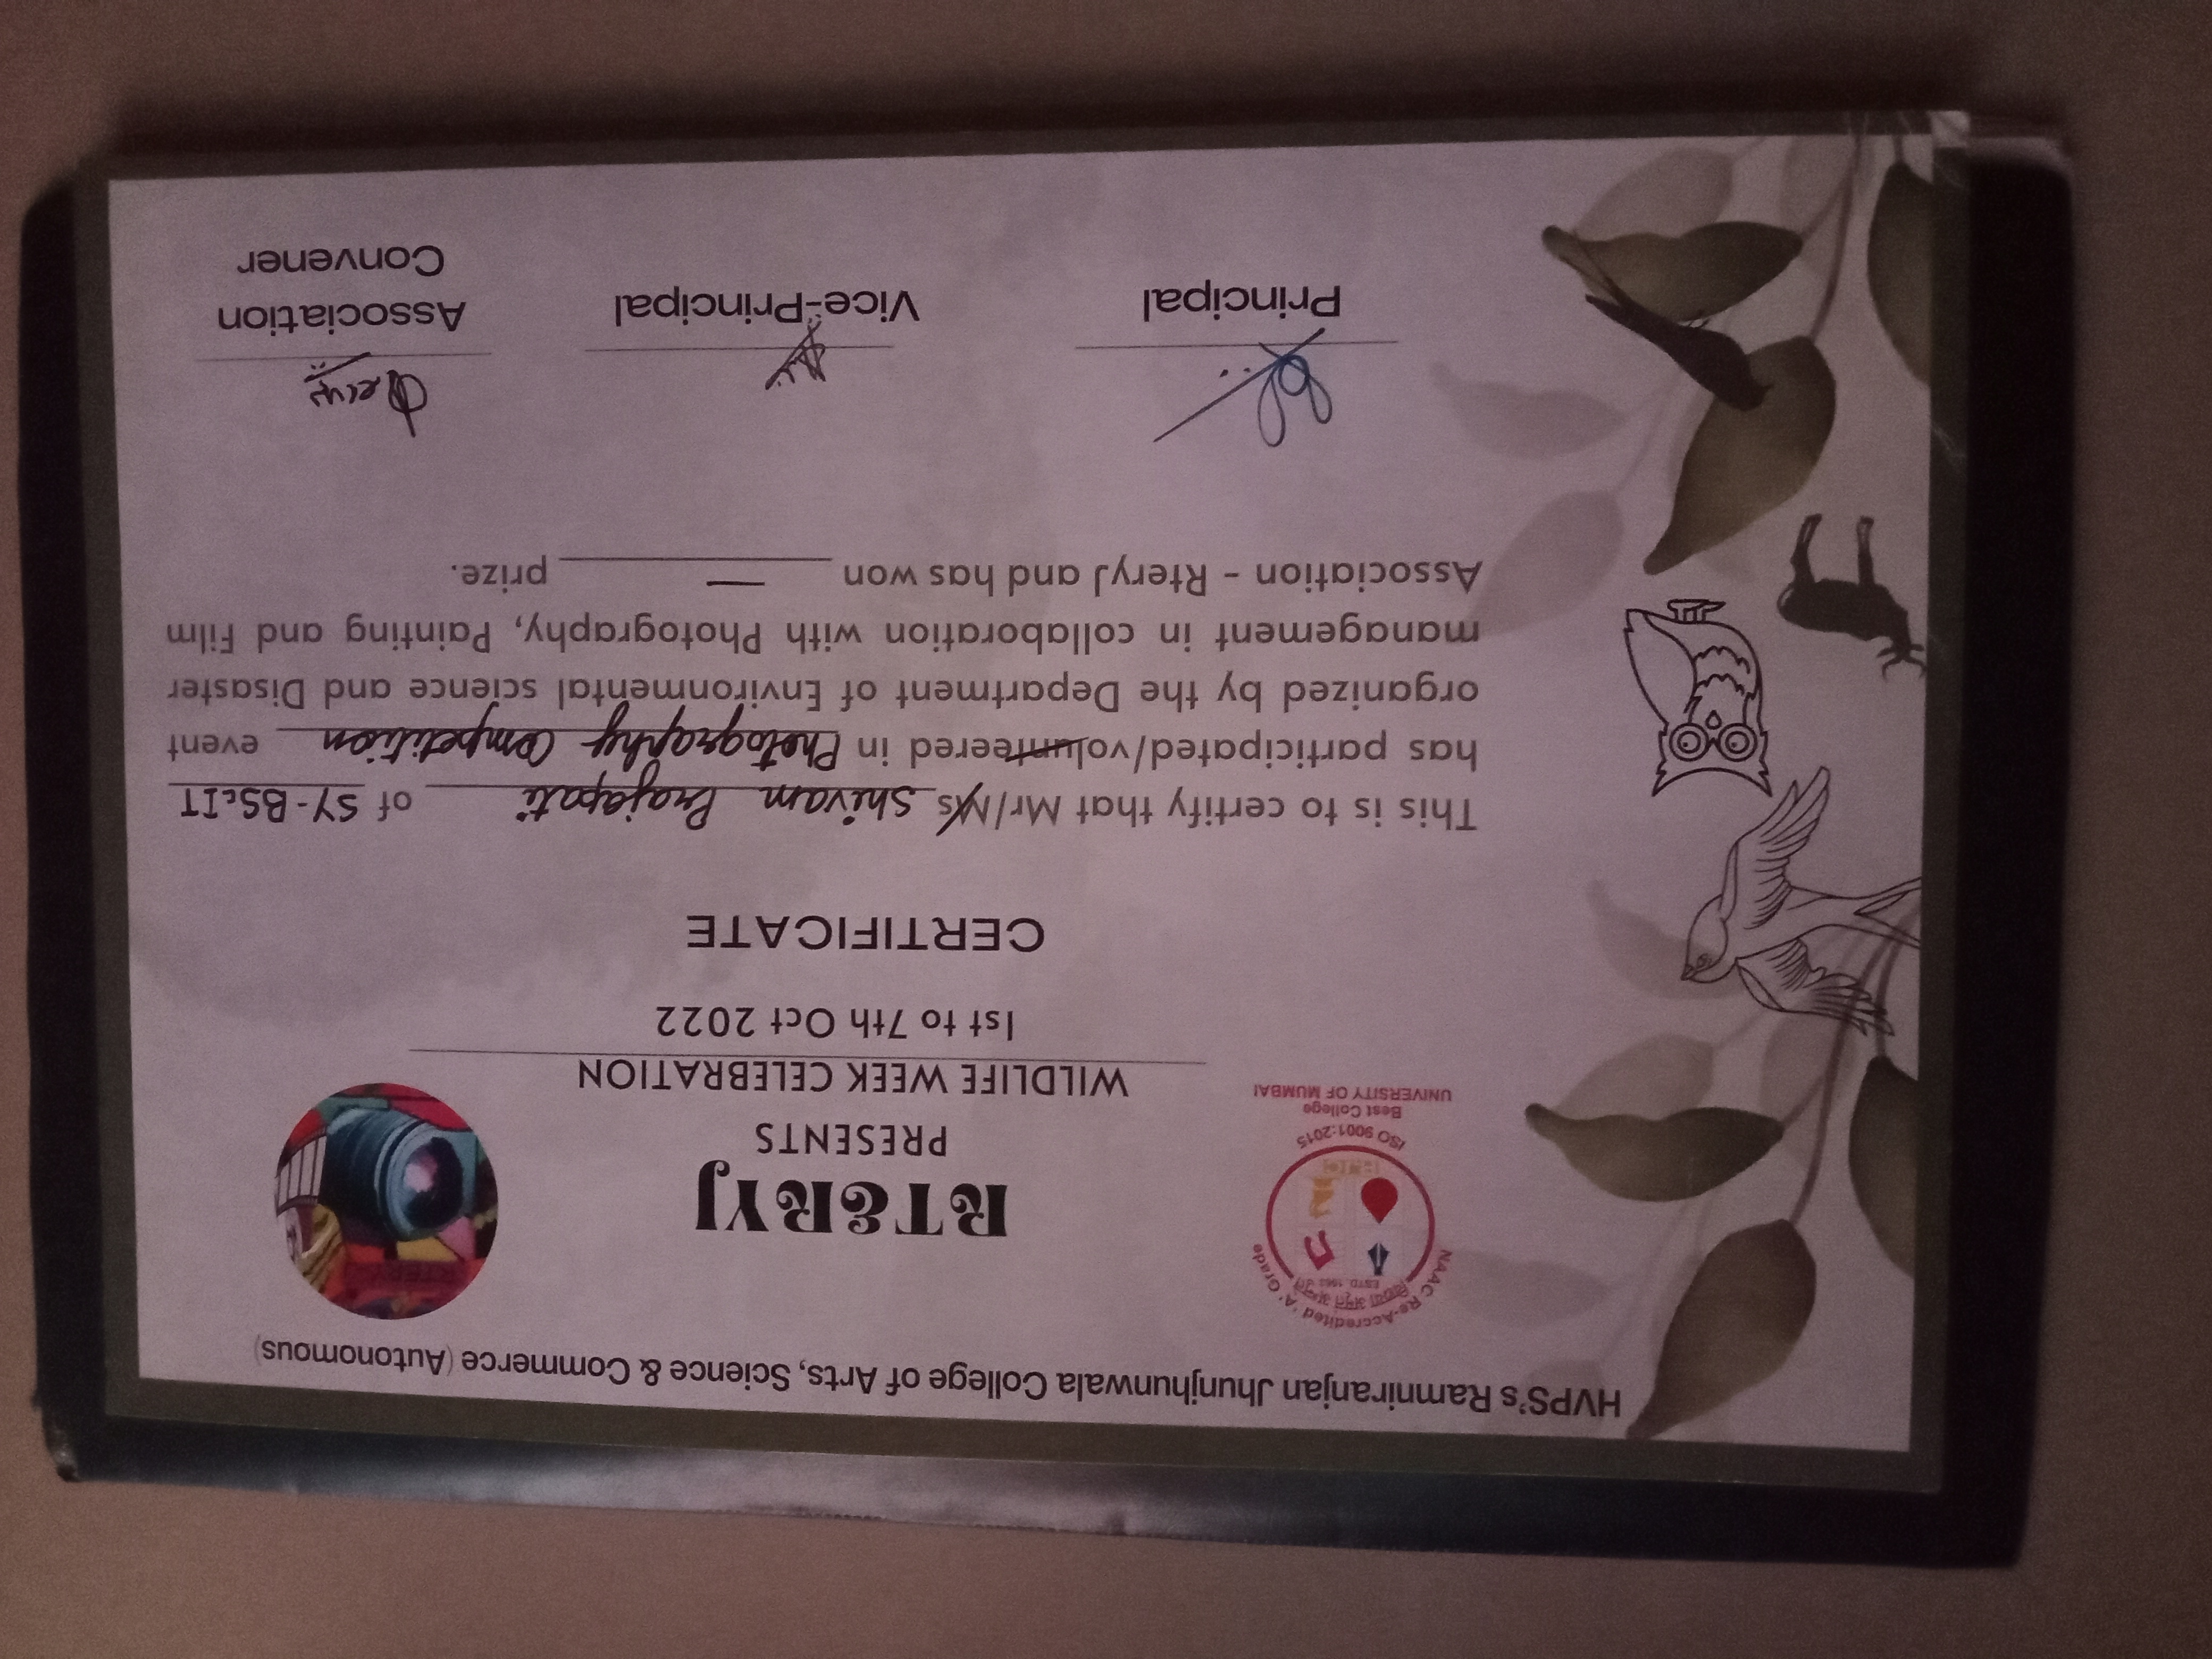 HVPS's Ramniranjan Jhunjhunwala College of Arts, Science & Commerce (Autonomous)
NAAC Re-Accredited 'A' Grade
विद्यया अमृतं अश्नुते
ESTD. 1963
RJC
ISO 9001:2015
Best College
UNIVERSITY OF MUMBAI
RTERYJ
RTERYJ
PRESENTS
WILDLIFE WEEK CELEBRATION
1st to 7th Oct 2022
CERTIFICATE
This is to certify that Mr/Ms Shivam Prajapati of SY-BScIT
has participated/volunteered in Photography Competition event
organized by the Department of Environmental science and Disaster
management in collaboration with Photography, Painting and Film
Association - RteryJ and has won — prize.
Principal
Vice-Principal
Association
Convener